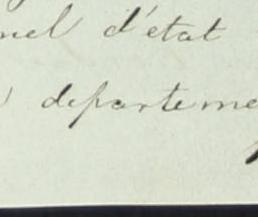 nel d'état
departeme